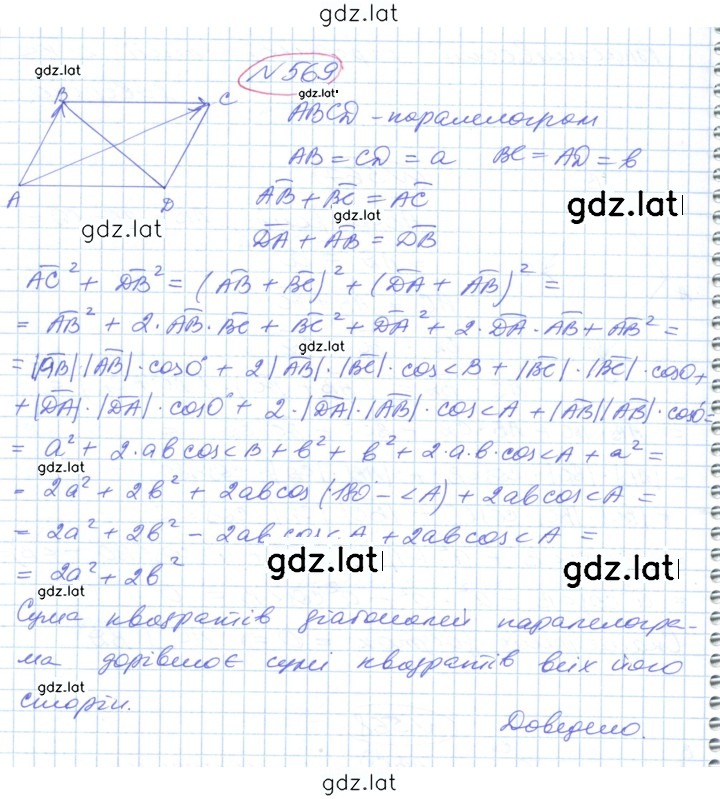 gdz.lat
gdz.lat
N569
gdz.lat
B
C
A
D
ABCD - паралелограм
AB = CD = a BC = AD = b
A̅B̅ + B̅C̅ = A̅C̅
gdz.lat
gdz.lat
gdz.lat
D̅A̅ + A̅B̅ = D̅B̅
A̅C̅² + D̅B̅² = (A̅B̅ + B̅C̅)² + (D̅A̅ + A̅B̅)² =
= A̅B̅² + 2·A̅B̅·B̅C̅ + B̅C̅² + D̅A̅² + 2·D̅A̅·A̅B̅ + A̅B̅² =
gdz.lat
= |A̅B̅||A̅B̅|·cos0° + 2|A̅B̅|·|B̅C̅|·cos<B + |B̅C̅|·|B̅C̅|·cos0 +
+ |D̅A̅|·|D̅A̅|·cos0° + 2·|D̅A̅|·|A̅B̅|·cos<A + |A̅B̅||A̅B̅|·cos0° =
= a² + 2·ab cos<B + b² + b² + 2·a·b·cos<A + a² =
gdz.lat
= 2a² + 2b² + 2ab cos(180° - <A) + 2ab cos<A =
= 2a² + 2b² - 2ab cos<A + 2ab cos<A =
gdz.lat
gdz.lat
= 2a² + 2b²
gdz.lat
Сума квадратів діагоналей паралелогра-
ма дорівнює сумі квадратів всіх його
gdz.lat
сторін.
Доведено.
gdz.lat